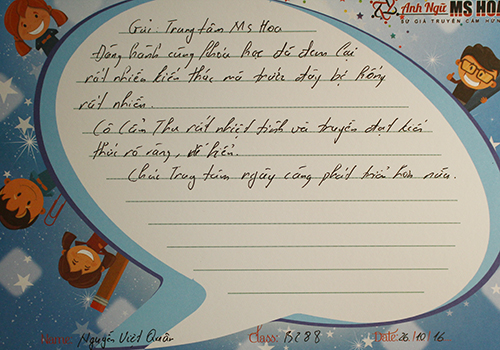 Anh Ngữ MS HOA
SỨ GIẢ TRUYỀN CẢM HỨNG
Gửi: Trung tâm Ms Hoa
Đồng hành cùng khóa học đã đem lại
rất nhiều kiến thức mà trước đây bị hổng
rất nhiều.
Cô Cẩm Thu rất nhiệt tình và truyền đạt kiến
thức rõ ràng, dễ hiểu.
Chúc Trung tâm ngày càng phát triển hơn nữa.
Name: Nguyễn Việt Quân Class: B288 Date: 26/10/16